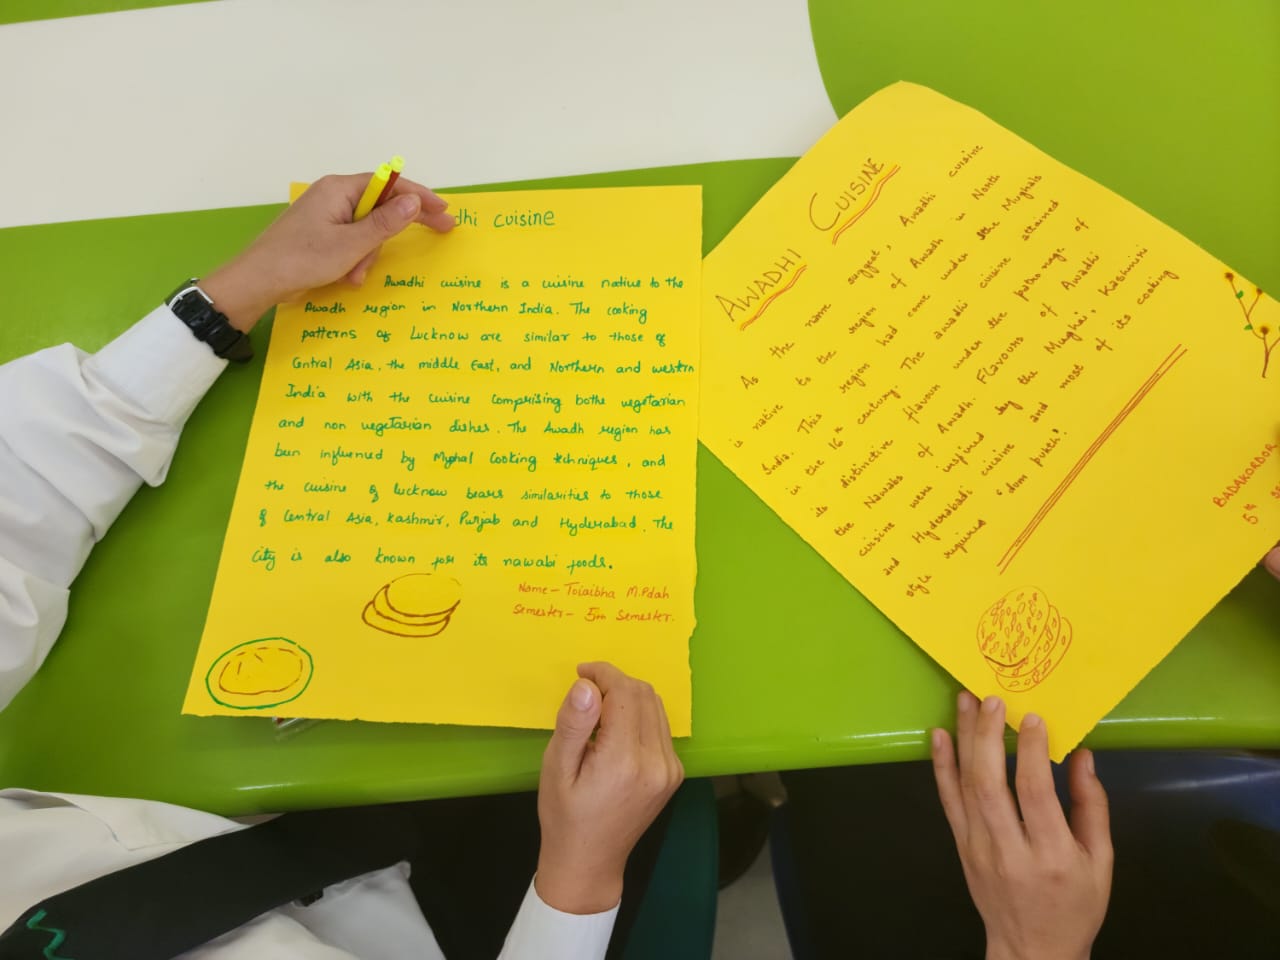 dhi cuisine
Awadhi cuisine is a cuisine native to the
Awadh region in Northern India. The cooking
patterns of Lucknow are similar to those of
Central Asia, the middle East, and Northern and western
India with the cuisine comprising bothe vegetarian
and non vegetarian dishes. The Awadh region has
been influenced by Mughal Cooking techniques, and
the cuisine of lucknow bears similarities to those
of Central Asia, Kashmir, Punjab and Hyderabad. The
city is also known for its nawabi foods.
Name - M.Pdah
Semester - 5th Semester.
AWADHI CUISINE
As the name suggest, Awadhi cuisine
is native to the region of Awadh in North
India. This region had come under the Mughals
in the 16th century. The awadhi cuisine attained
its distinctive flavour under the patronage of
the Nawabs of Awadh. Flavours of Awadhi
cuisine were inspired by the Mughai, Kashmiri
and Hyderabadi cuisine and most of its cooking
style requires 'dum pukth'.
BADAKORDOR
5th